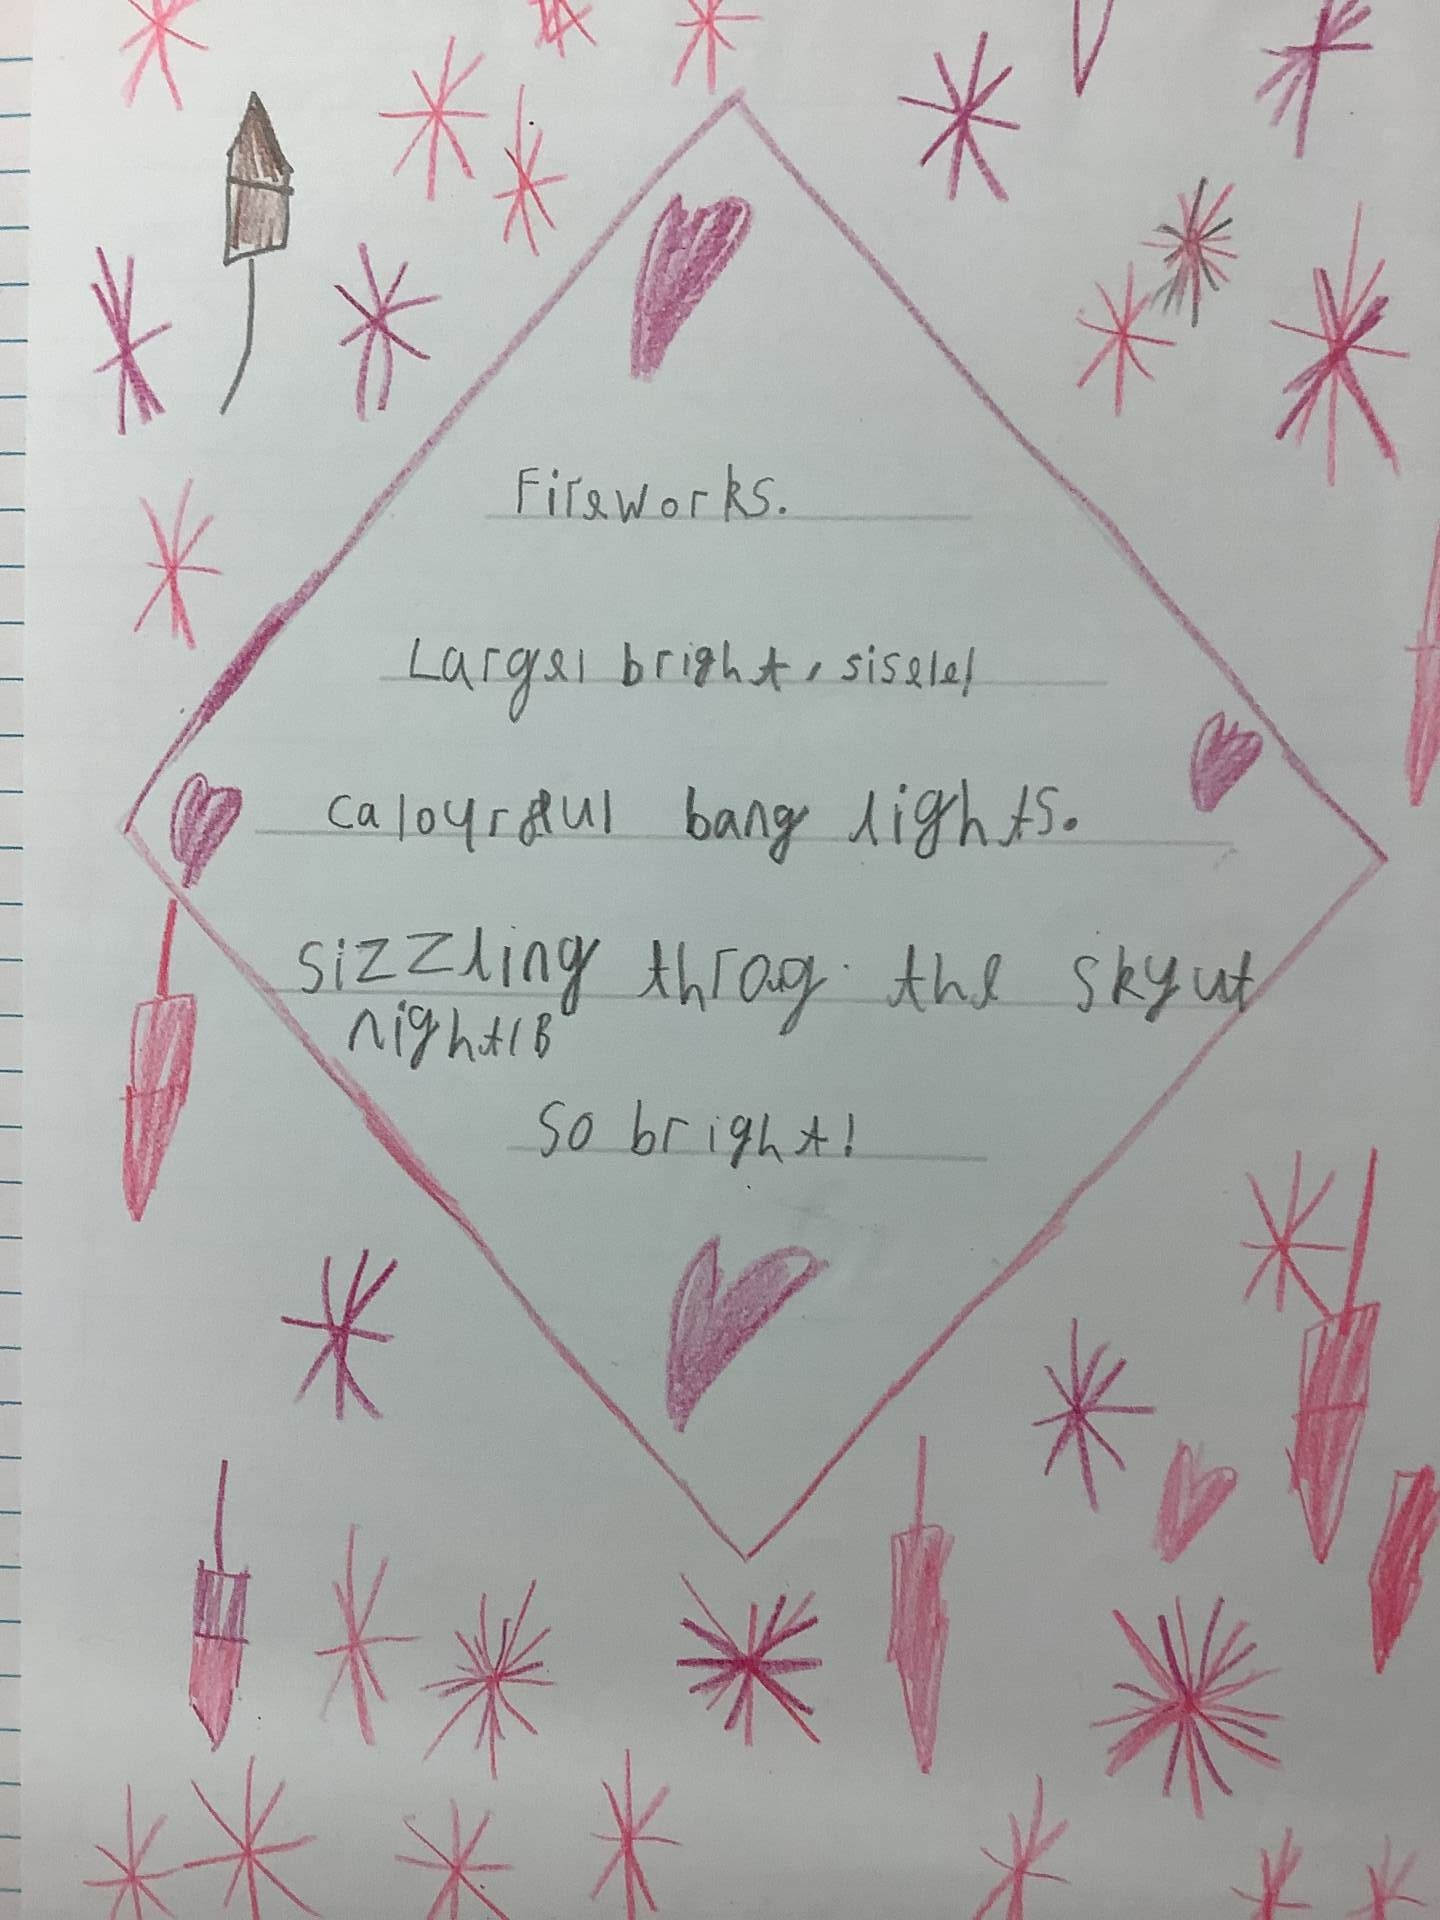 Fireworks.
Large, bright, siscle,
calourful bang lights.
sizzling throg the sky ut
night/B
So bright!